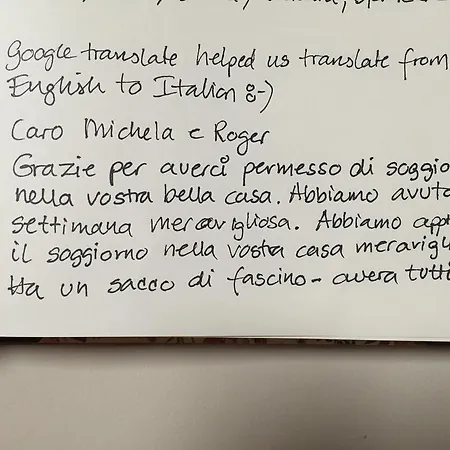 Google translate helped us translate from
English to Italian :-)
Caro Michela e Roger
Grazie per averci permesso di soggio
nella vostra bella casa. Abbiamo avuto
settimana meravigliosa. Abbiamo app
il soggiorno nella vostra casa meravigl
Ha un sacco di fascino - avera tutti